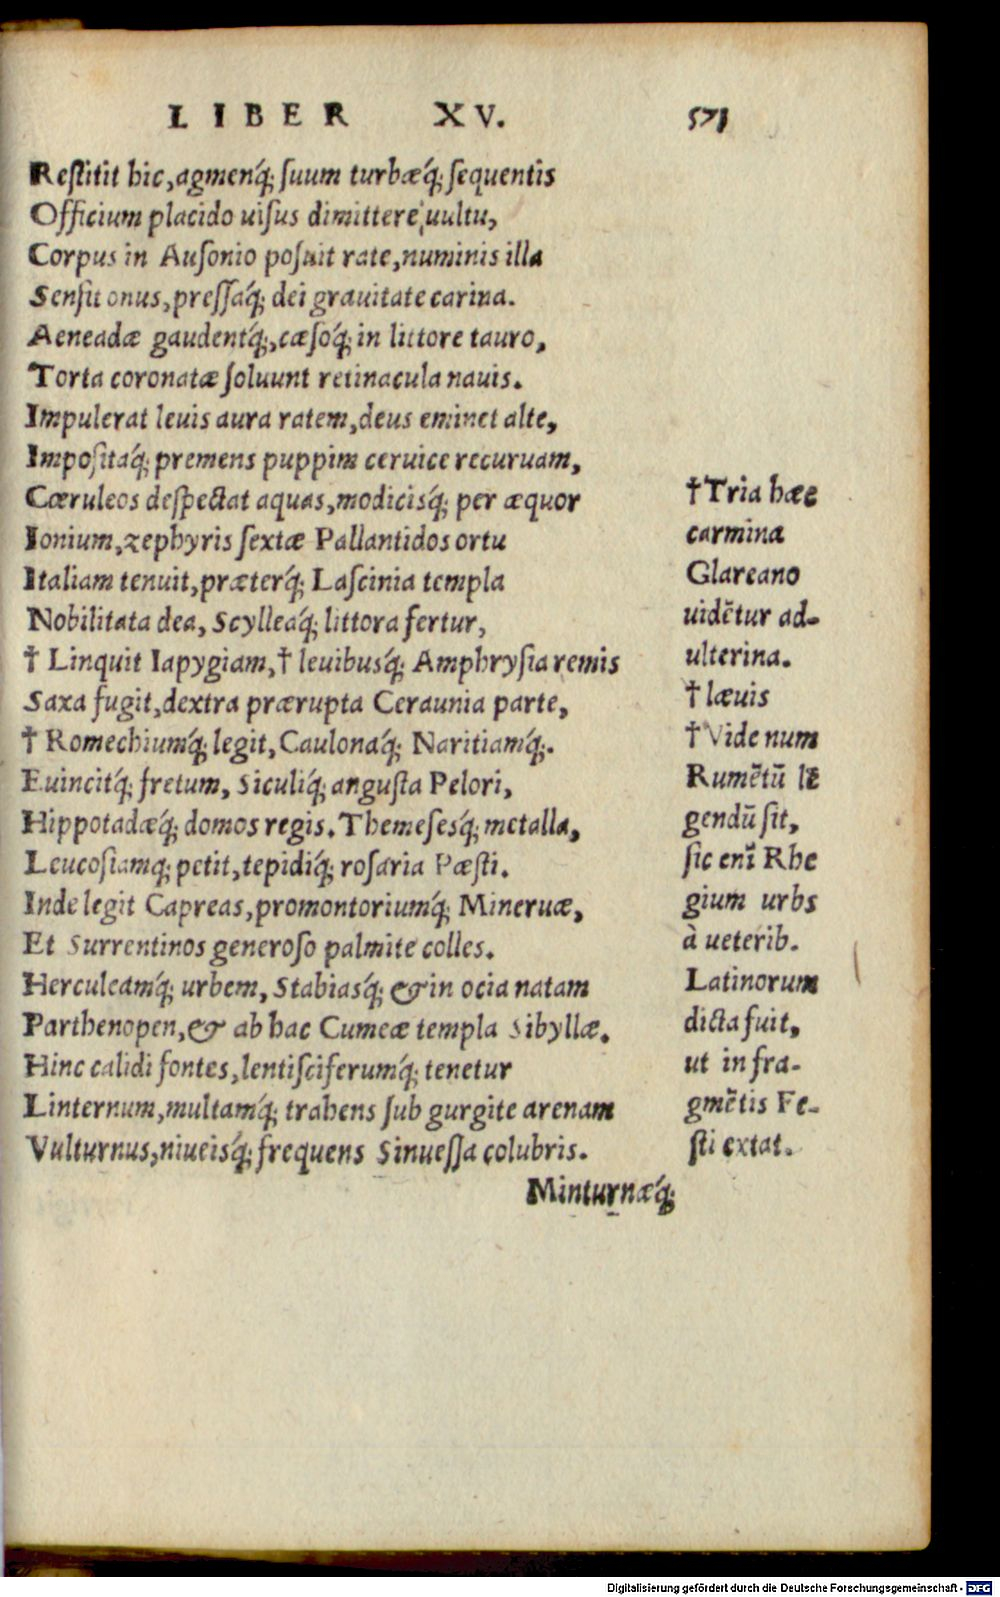 LIBER XV. 571
Reſtitit hic, agmenq́; ſuum turbæq́; ſequentis
Officium placido uiſus dimittere uultu,
Corpus in Auſonio poſuit rate, numinis illa
Senſit onus, preſſaq́; dei grauitate carina.
Aeneadæ gaudentq́;, cæſoq́; in littore tauro,
Torta coronatæ ſoluunt retinacula nauis.
Impulerat leuis aura ratem, deus eminet alte,
Impoſitaq́; premens puppim ceruice recuruam,
Cœruleos deſpectat aquas, modicisq́; per æquor
Ionium, zephyris ſextæ Pallantidos ortu
Italiam tenuit, præterq́; Laſcinia templa
Nobilitata dea, Scylleaq́; littora fertur,
† Linquit Iapygiam, † leuibusq́; Amphryſia remis
Saxa fugit, dextra prærupta Ceraunia parte,
† Romechiumq́; legit, Caulonaq́; Naritiamq́;.
Euincitq́; fretum, Siculiq́; anguſta Pelori,
Hippotadæq́; domos regis. Themeſesq́; metalla,
Leucoſiamq; petit, tepidiq́; roſaria Pæſti.
Inde legit Capreas, promontoriumq́; Mineruæ,
Et Surrentinos generoſo palmite colles.
Herculeamq́; urbem, Stabiasq́; & in ocia natam
Parthenopen, & ab hac Cumeæ templa Sibyllæ.
Hinc calidi fontes, lentiſciferumq́; tenetur
Linternum, multamq́; trahens ſub gurgite arenam
Vulturnus, niueisq́; frequens Sinueſſa colubris.
Minturnæq́;
†Tria hæc
carmina
Glareano
uidẽtur ad-
ulterina.
† læuis
† Vide num
Rumẽtũ lẽ
gendũ ſit,
ſic enĩ Rhe
gium urbs
à ueterib.
Latinorum
dicta fuit,
ut in fra-
gmẽtis Fe-
ſti extat.
Digitalisierung gefördert durch die Deutsche Forschungsgemeinschaft - DFG